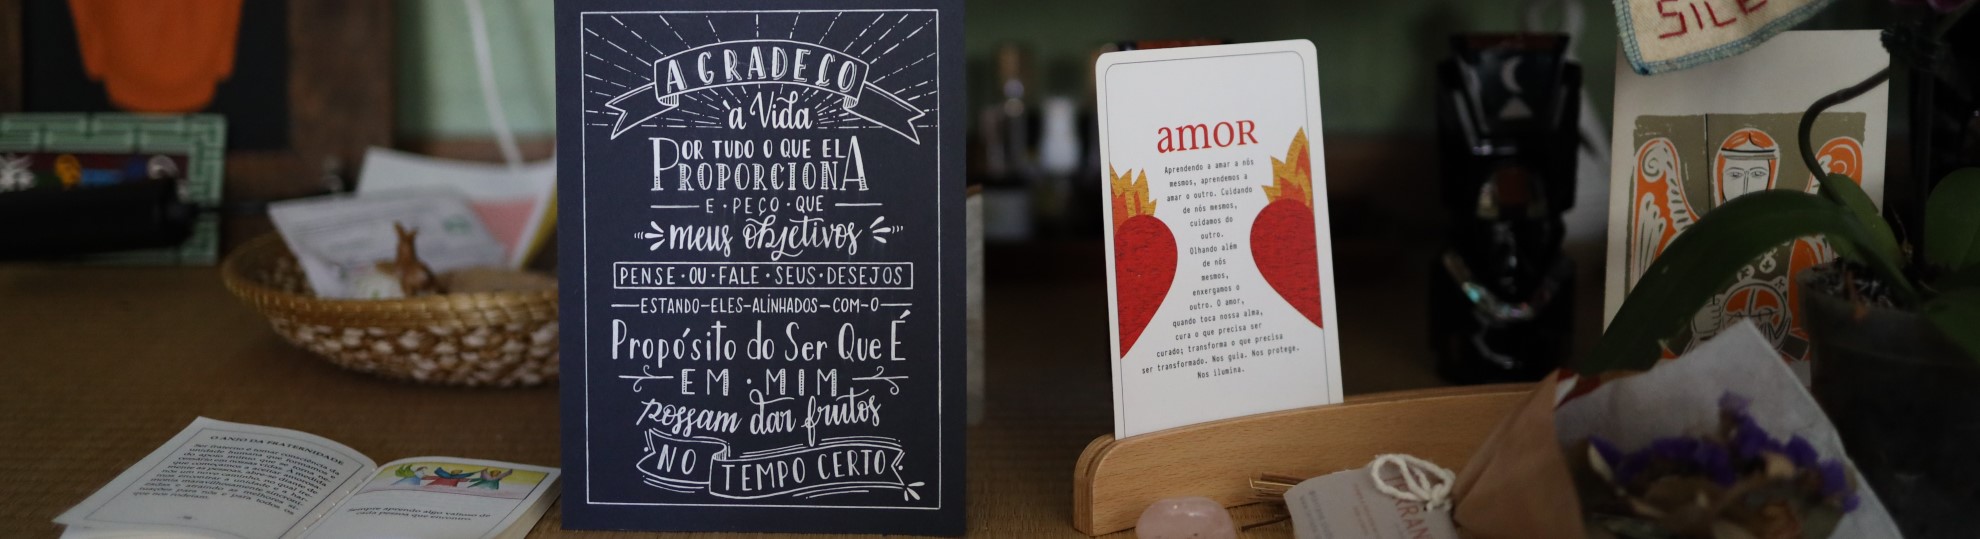 AGRADEÇO
à Vida
POR TUDO O QUE ELA
PROPORCIONA
E · PEÇO · QUE
meus objetivos
PENSE · OU · FALE · SEUS · DESEJOS
ESTANDO-ELES-ALINHADOS-COM-O
Propósito do Ser Que É
EM · MIM
possam dar frutos
NO TEMPO CERTO
amor
Aprendendo a amar a nós
mesmos, aprendemos a
amar o outro. Cuidando
de nós mesmos,
cuidamos do
outro.
Olhando além
de nós
mesmos,
enxergamos o
outro. O amor,
quando toca nossa alma,
cura o que precisa ser
curado; transforma o que precisa
ser transformado. Nos guia. Nos protege.
Nos ilumina.
O ANJO DA FRATERNIDADE
Sempre aprendo algo valioso de
cada pessoa que encontro
SILE